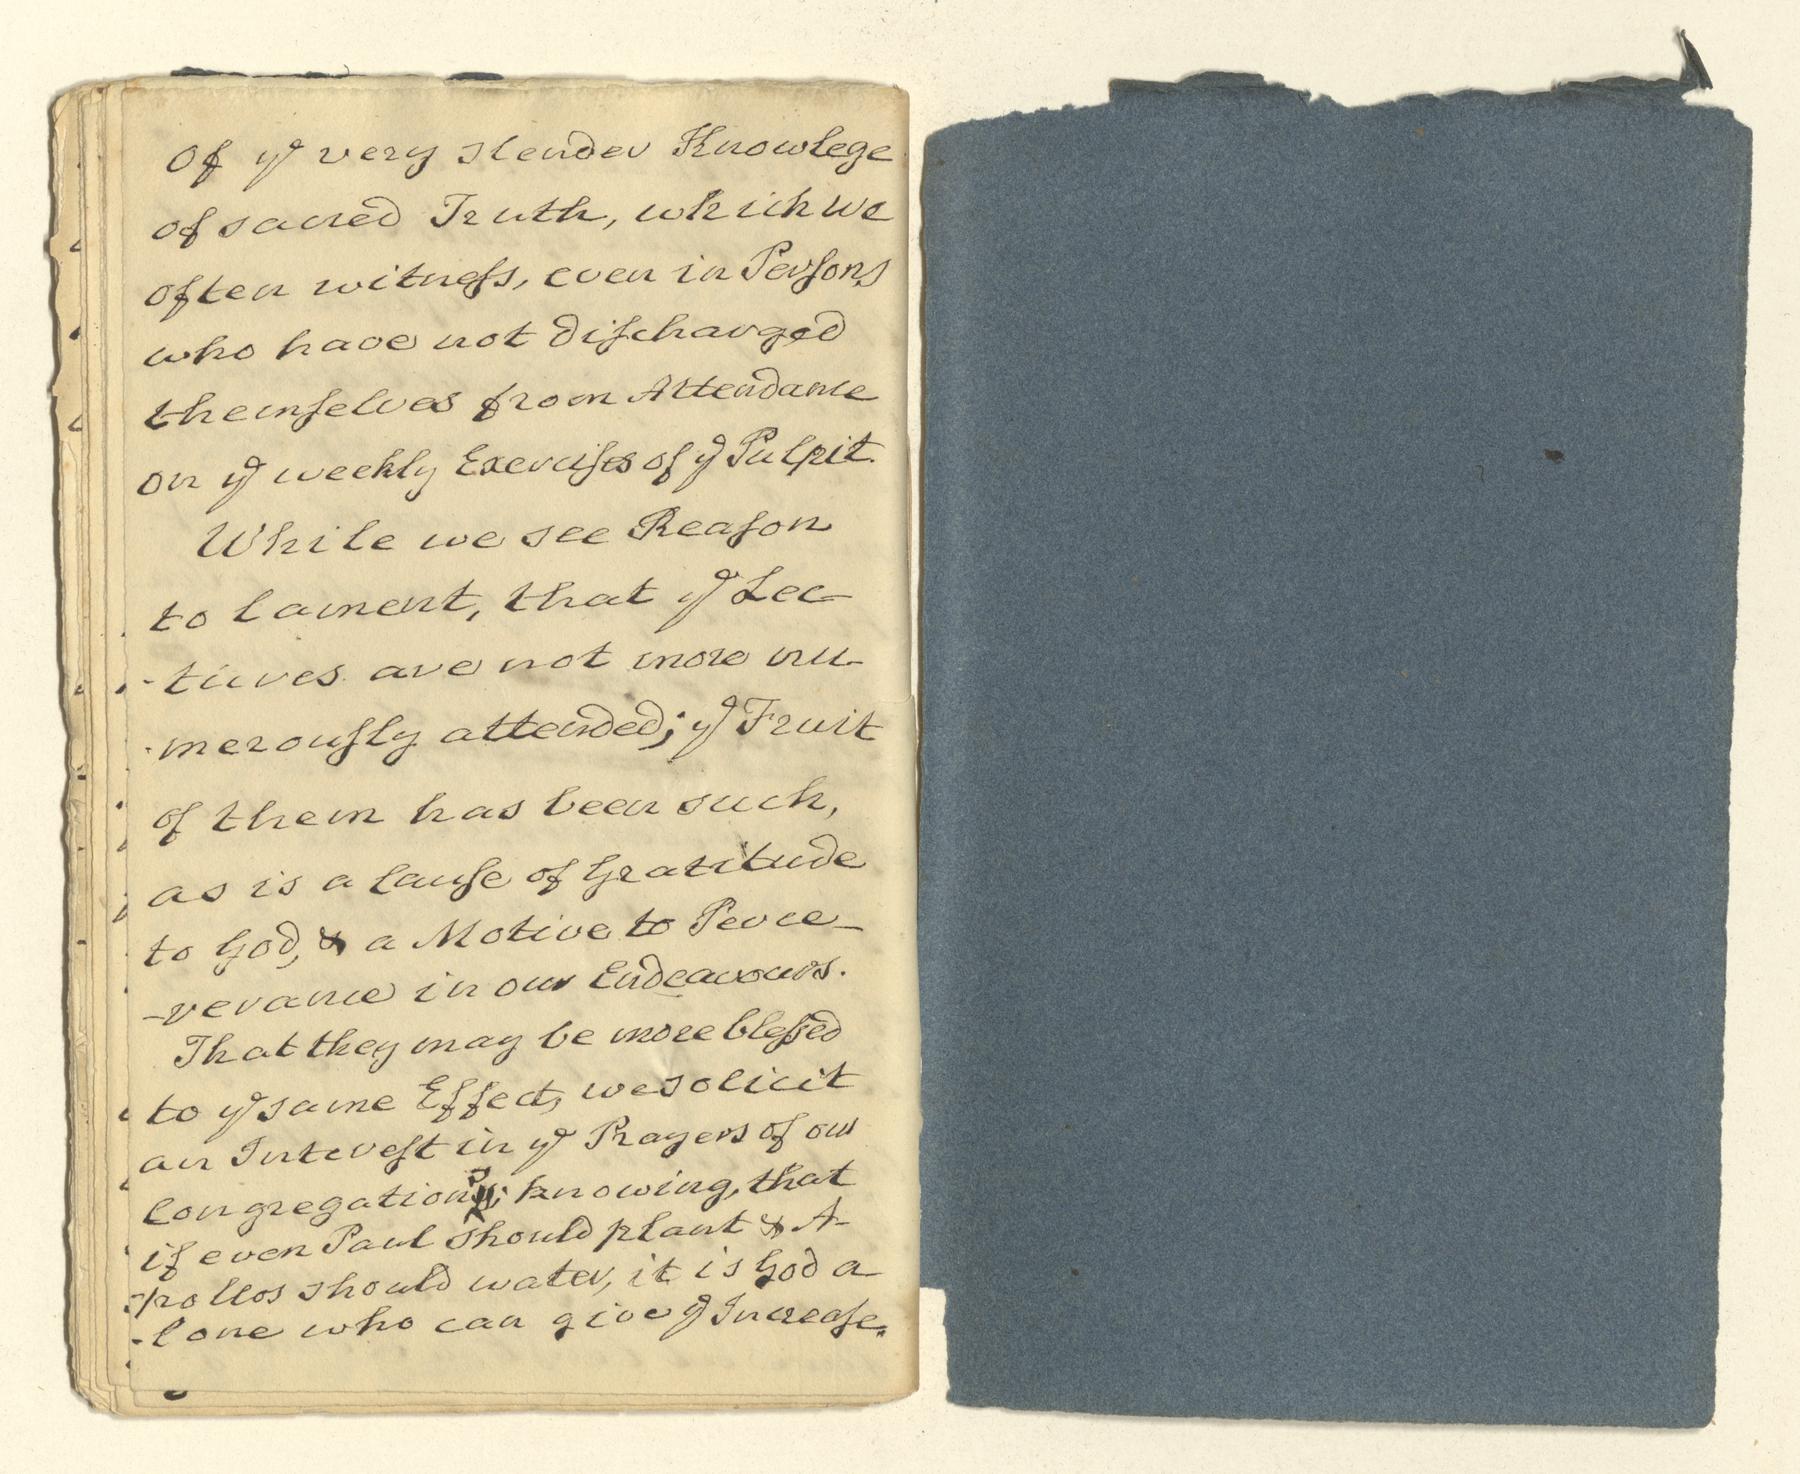 Of yᵉ very slender Knowlege
of sacred Truth, which we
often witneſs, even in Perſons
who have not diſcharged
themſelves from Attendance
on yᵉ weekly Exerciſes of yᵉ Pulpit.
While we see Reaſon
to lament, that yᵉ Lec-
-tures are not more nu-
-merouſly attended; yᵉ Fruit
of them has been such,
as is a Cauſe of Gratitude
to God, & a Motive to Perce-
-verance in our Endeavours.
That they may be more bleſsed
to yᵉ same Effect, we solicit
an Intereſt in yᵉ Prayers of our
Congregations; knowing, that
if even Paul should plant & A-
-pollos should water, it is God a-
-lone who can give yᵉ Increaſe.